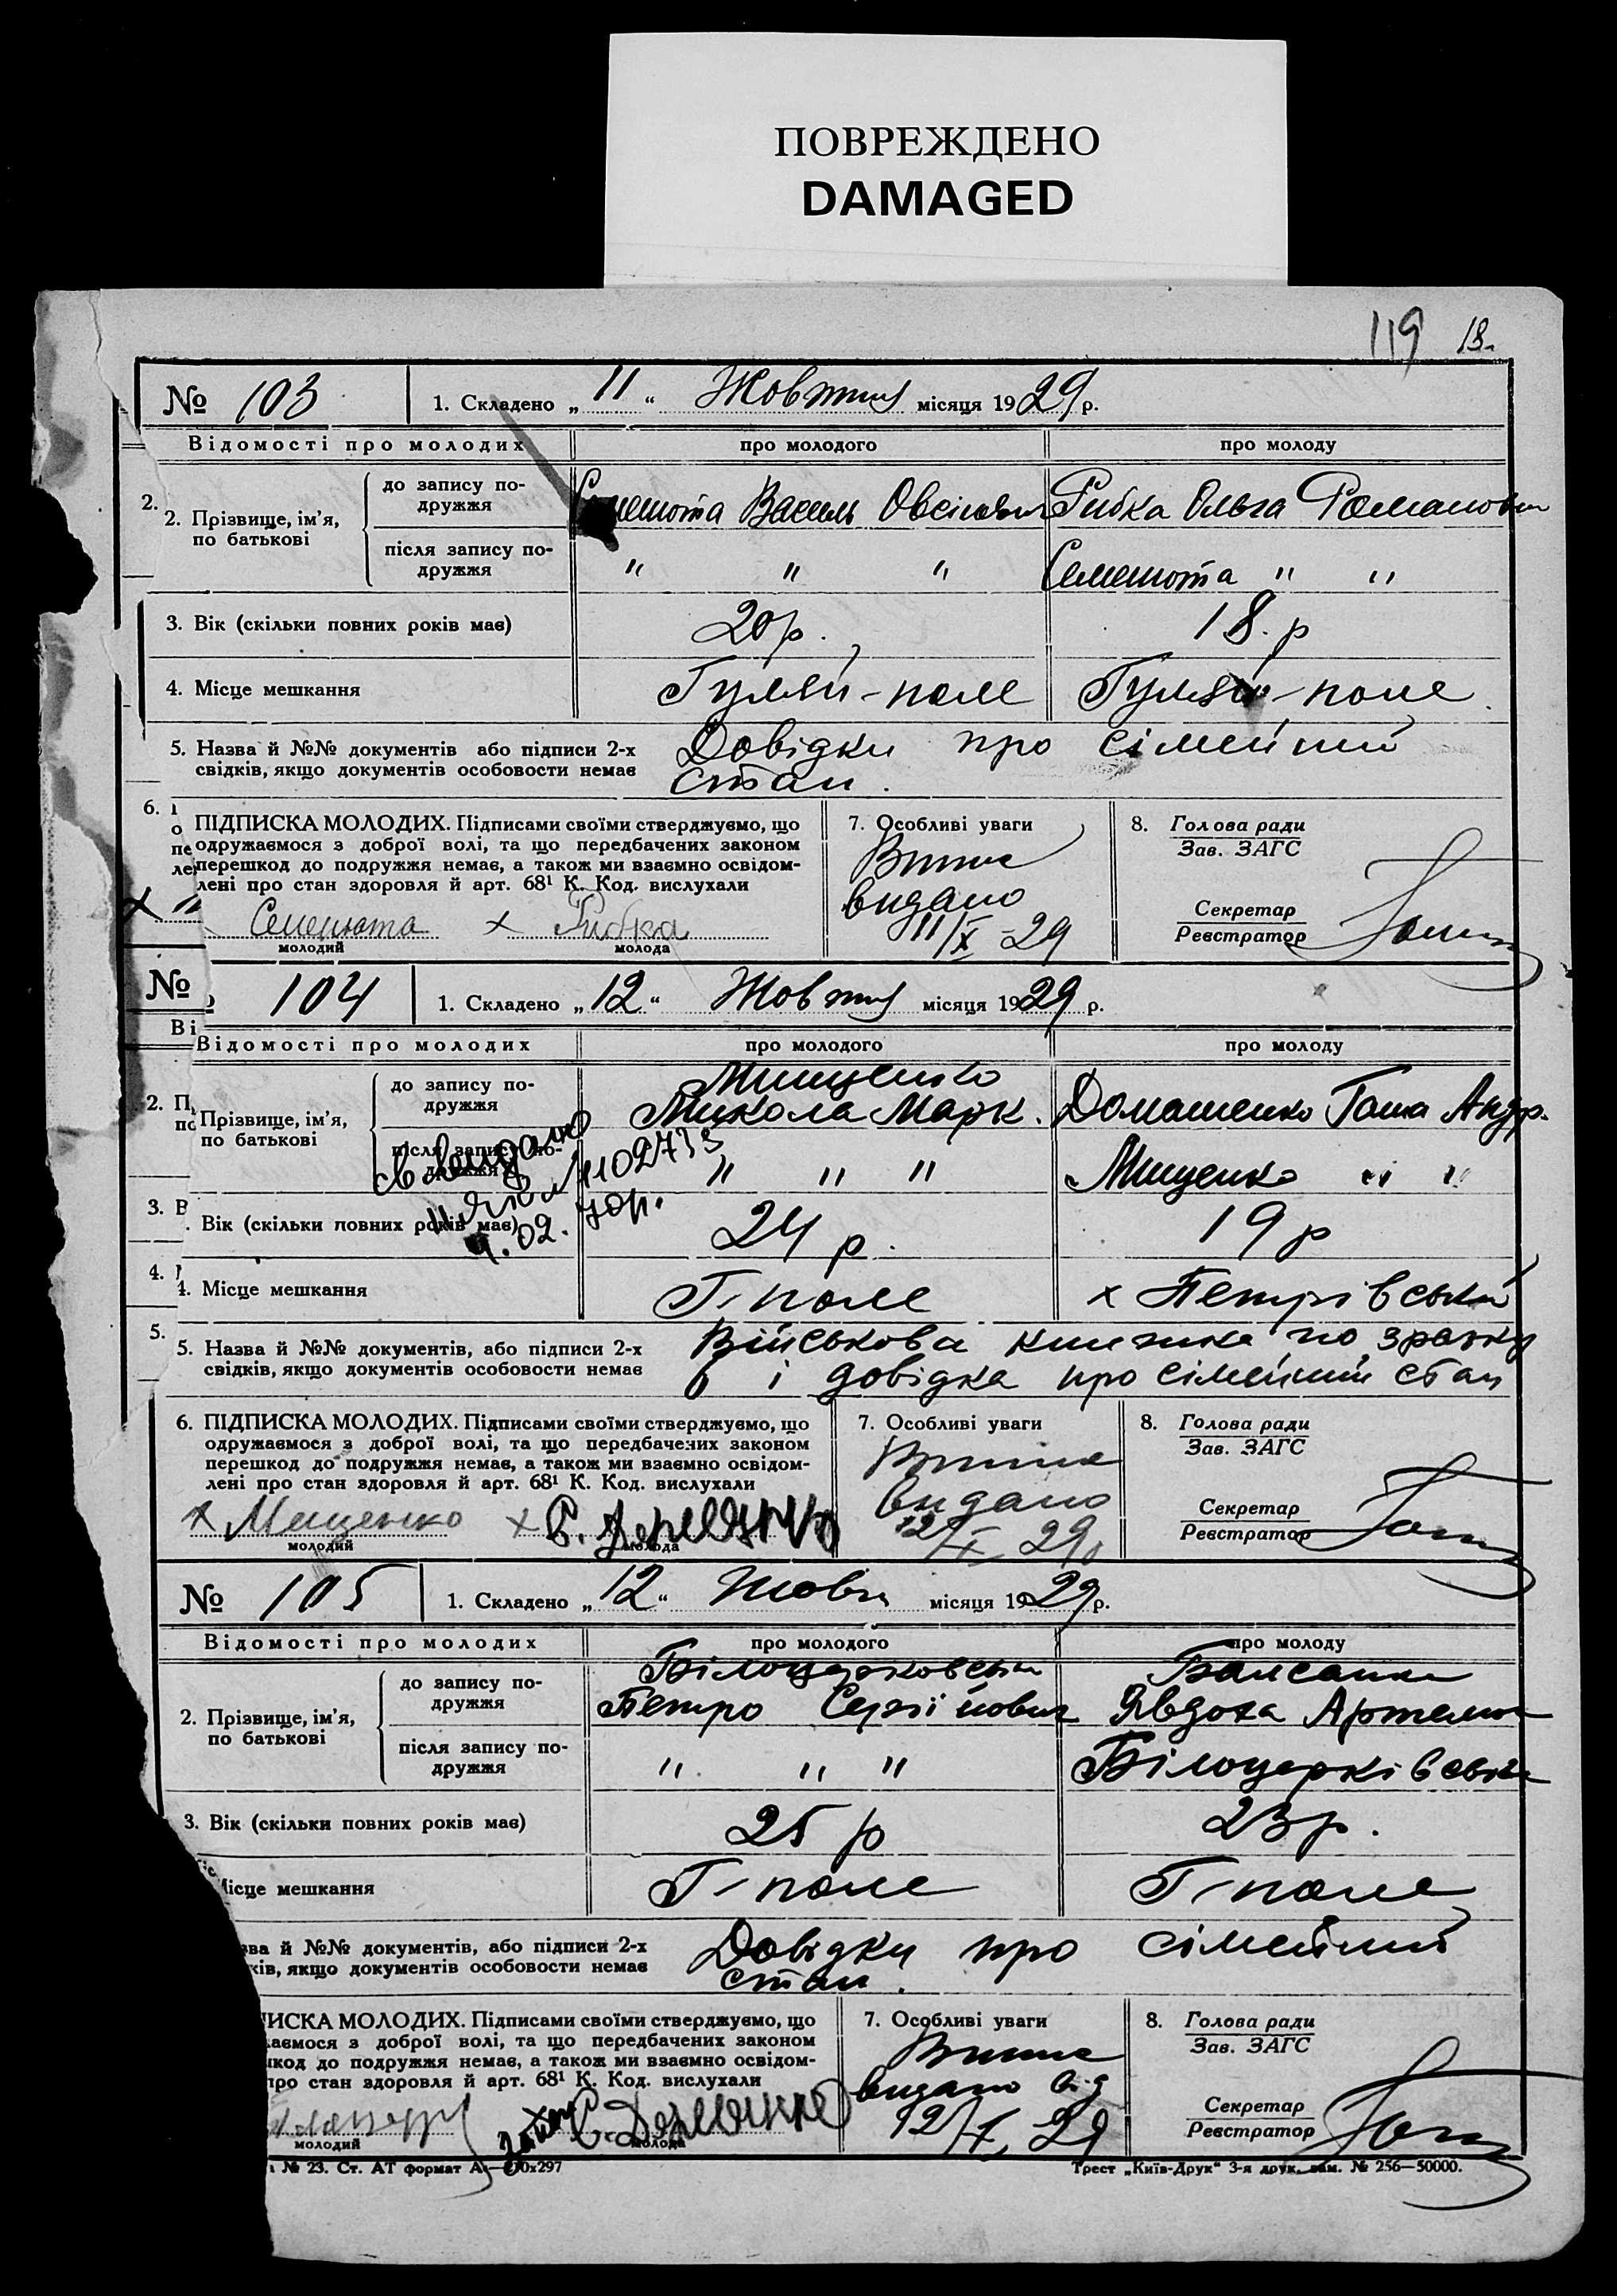 ПОВРЕЖДЕНО
DAMAGED
119 13
№ 103 1. Складено „ 11 “ Жовтня місяця 1929 р.
Відомості про молодих про молодого про молоду
2. 2. Прізвище, ім’я, по батькові
до запису подружжя Семенюта Василь Овсійович Рибка Ольга Романовн
після запису подружжя " " " Семенюта " "
3. Вік (скільки повних років має) 20 р. 18. р
4. Місце мешкання Гуляй-поле Гуляй-поле
5. Назва й №№ документів або підписи 2-х Довідки про сімейний
свідків, якщо документів особовости немає стан.
6. ПІДПИСКА МОЛОДИХ. Підписами своїми стверджуємо, що
одружаємося з доброї волі, та що передбачених законом
перешкод до подружжя немає, а також ми взаємно освідом-
лені про стан здоровля й арт. 68¹ К. Код. вислухали
х Семенюта х Рибка
молодий молода
7. Особливі уваги
видано
11/X-29
8. Голова ради
Зав. ЗАГС
Секретар
Реєстратор
№ 104 1. Складено „ 12 “ Жовтня місяця 1929 р.
Ві
Відомості про молодих про молодого про молоду
2. П
Прізвище, ім’я, по батькові
до запису подружжя Мищенко
Микола Марк. Домашенко Андр.
після запису подружжя " " " Мищенко " "
3. В
Вік (скільки повних років має) 24 р. 19 р
4.
4. Місце мешкання Г-поле х Петрівський
5.
5. Назва й №№ документів, або підписи 2-х Військова книжка по зразку
свідків, якщо документів особовости немає 6 і довідка про сімейний стан
6. ПІДПИСКА МОЛОДИХ. Підписами своїми стверджуємо, що
одружаємося з доброї волі, та що передбачених законом
перешкод до подружжя немає, а також ми взаємно освідом-
лені про стан здоровля й арт. 68¹ К. Код. вислухали
х Мищенко х
молодий молода
7. Особливі уваги
видано
12/X 29
8. Голова ради
Зав. ЗАГС
Секретар
Реєстратор
№ 105 1. Складено „ 12 “ Жовтн місяця 1929 р.
Відомості про молодих про молодого про молоду
2. Прізвище, ім’я, по батькові
до запису подружжя Білоцерковськ
Петро Сергійович Явдоха Артемов
після запису подружжя " " " Білоцерківська
3. Вік (скільки повних років має) 25 р 23 р.
Місце мешкання Г-поле Г-поле
зва й №№ документів, або підписи 2-х Довідки про сімейний
ків, якщо документів особовости немає стан.
ИСКА МОЛОДИХ. Підписами своїми стверджуємо, що
жаємося з доброї волі, та що передбачених законом
шкод до подружжя немає, а також ми взаємно освідом-
про стан здоровля й арт. 68¹ К. Код. вислухали
молодий молода
7. Особливі уваги
видано
12/X 29
8. Голова ради
Зав. ЗАГС
Секретар
Реєстратор
№ 23. Ст. АТ формат А₄—210х297 Трест „Київ-Друк“ 3-я друк. зам. № 256—50000.